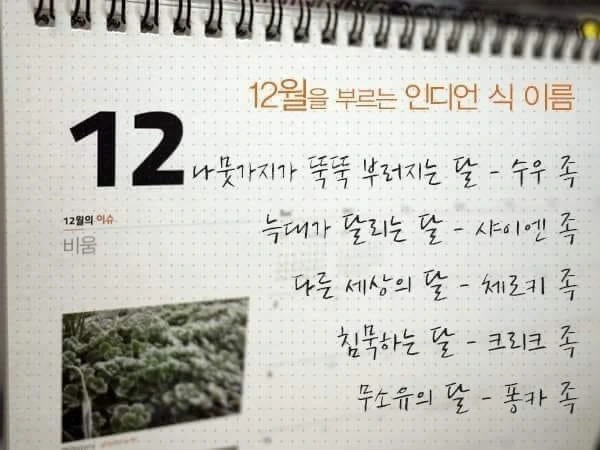 12월을 부르는 인디언 식 이름
12
나뭇가지가 뚝뚝 부러지는 달 - 수우 족
12월의 이슈
비움
늑대가 달리는 달 - 샤이엔 족
다른 세상의 달 - 체로키 족
침묵하는 달 - 크리크 족
무소유의 달 - 퐁카 족